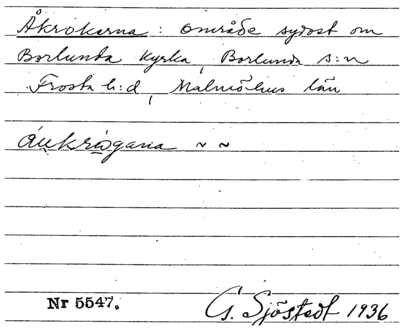 Åkrokarna: område sydost om
Borlunda kyrka, Borlunda s:n
Frosta h:d, Malmöhus län
áukrωgana ~ ~
Nr 5547.
G. Sjöstedt 1936